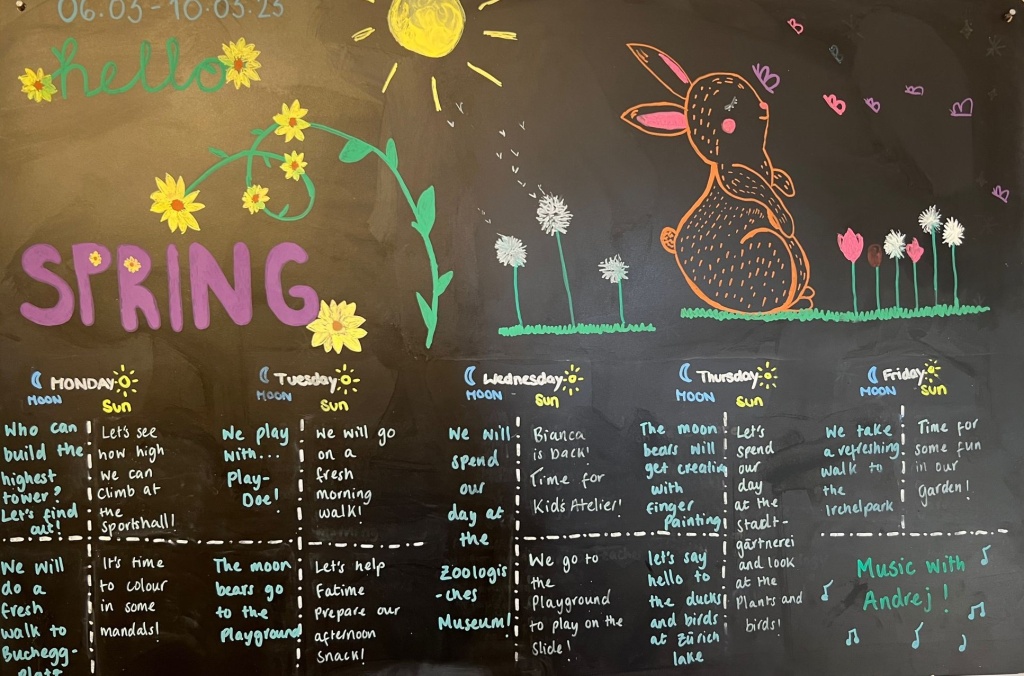 06.03-10.03.23
hello
SPRING
MONDAY
MOON
Sun
Who can
build the
highest
tower?
Let's find
out!
Let's see
how high
we can
climb at
the
sportshall!
We will
do a
fresh
walk to
Buchegg-
Platz
It's time
to colour
in some
mandals!
Tuesday
MOON
Sun
We play
with...
Play-
Doe!
We will go
on a
fresh
morning
walk!
The moon
bears go
to the
Playground
Let's help
Fatime
Prepare our
afternoon
Snack!
Wednesday
MOON
Sun
We will
spend
our
day at
the
Zoologis
-ches
Museum!
Bianca
is back!
Time for
Kids Atelier!
We go to
the
Playground
to play on the
Slide!
Thursday
MOON
Sun
The moon
bears will
get creativ
with
finger
Painting!
let's say
hello to
the ducks
and birds
at Zürich
lake
Let's
spend
our
day
at the
stadt-
gärtnerei
and look
at the
Plants and
birds!
Friday
MOON
Sun
We take
a refreshing
walk to
the
Irchelpark
Time for
some fun
in our
garden!
Music with
Andrej!